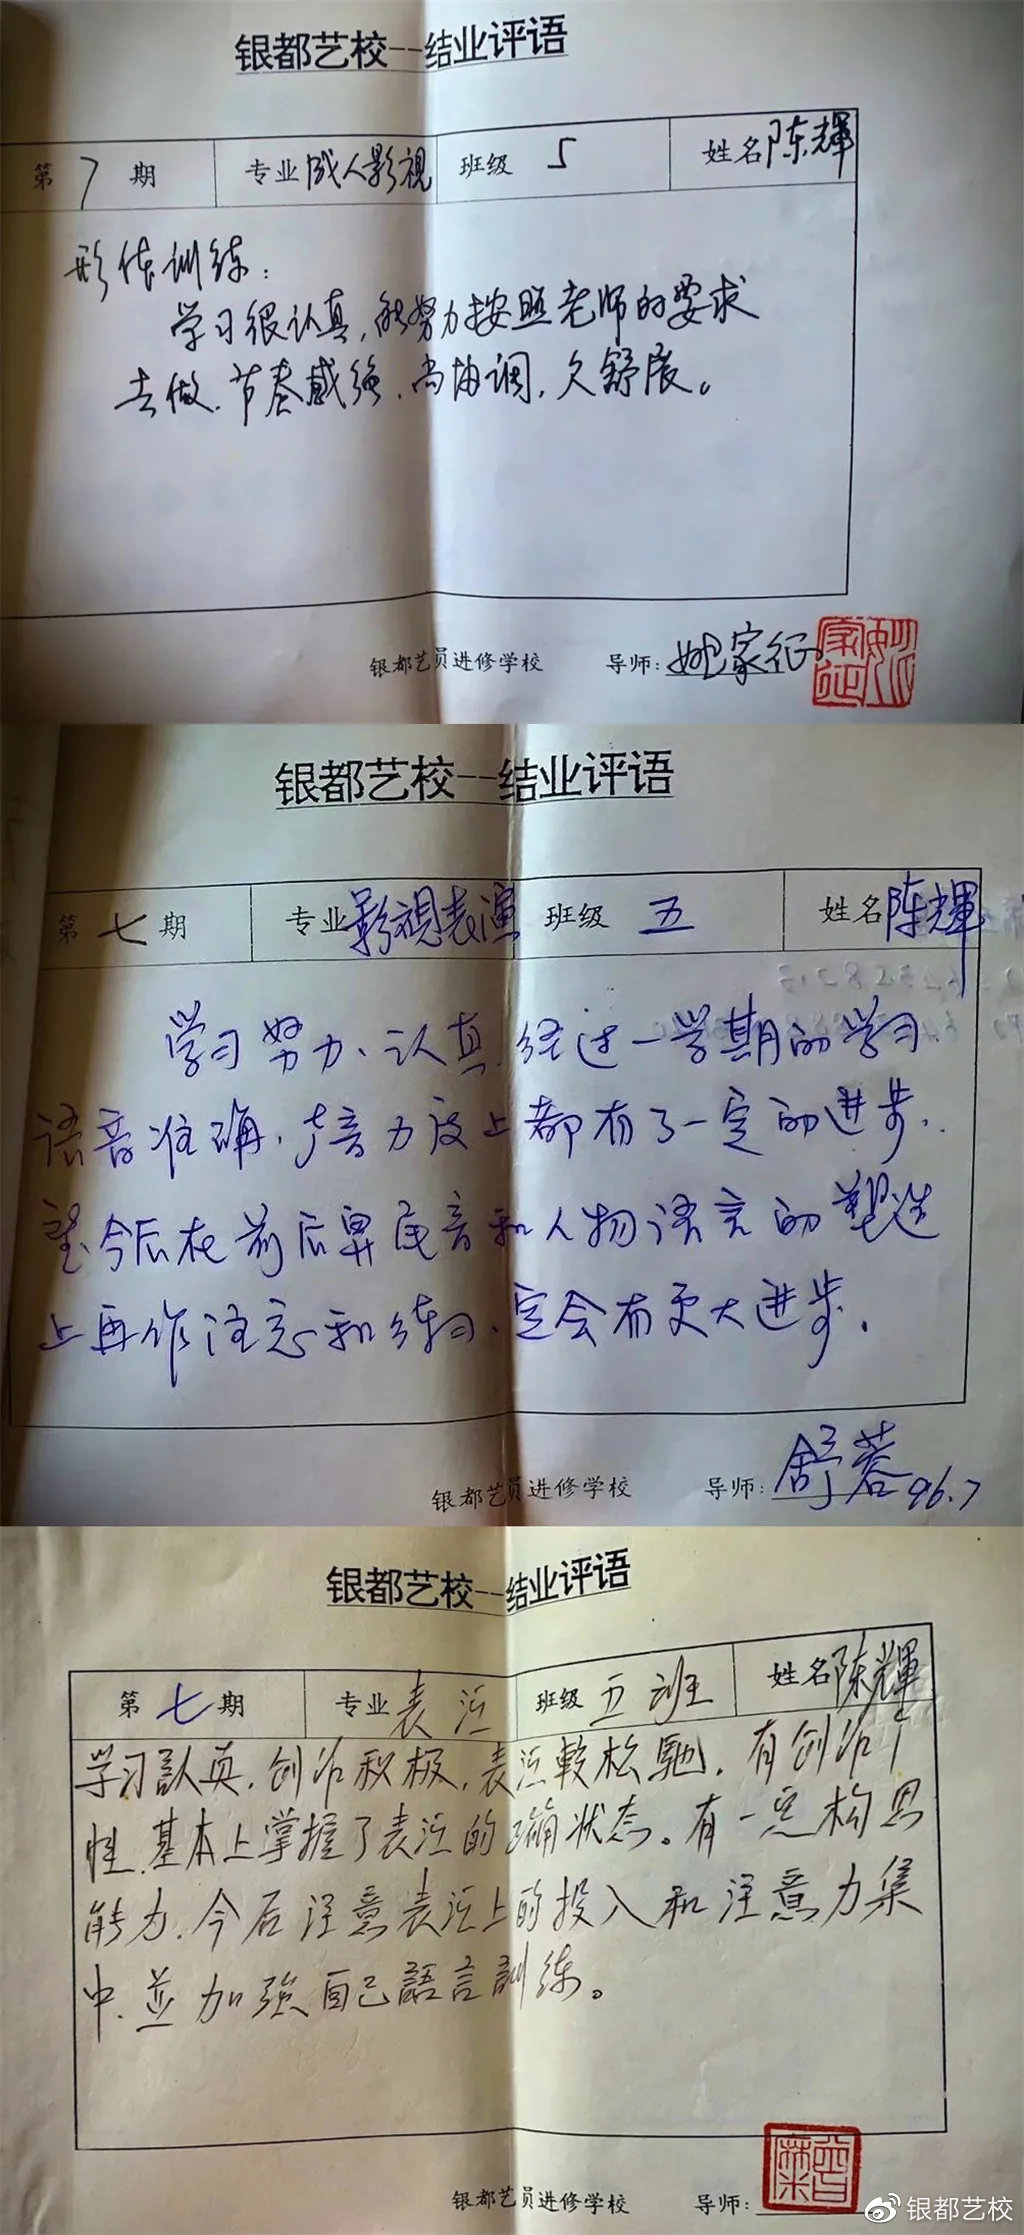 银都艺校--结业评语
第 7 期 专业 成人影视 班级 5 姓名 陈輝
形体训练：
学习很认真，能努力按照老师的要求
去做，节奏感强，尚协调，欠舒展。
银都艺员进修学校 导师：姚家征
银都艺校--结业评语
第 七 期 专业 影視表演 班级 五 姓名 陈輝
学习努力、认真，经过一学期的学习，
语音准确，声音力度上都有了一定的进步，
望今后在前后鼻尾音和人物语言的塑造
上再作注意和练习，定会有更大进步。
银都艺员进修学校 导师：舒蓉 96.7
银都艺校--结业评语
第 七 期 专业 表演 班级 五班 姓名 陈輝
学习認真，创作积极，表演較松馳，有创作个
性，基本上掌握了表演的正确状态。有一定构思
能力，今后注意表演上的投入和注意力集
中，並加强自己語言訓练。
银都艺员进修学校 导师：
银都艺校